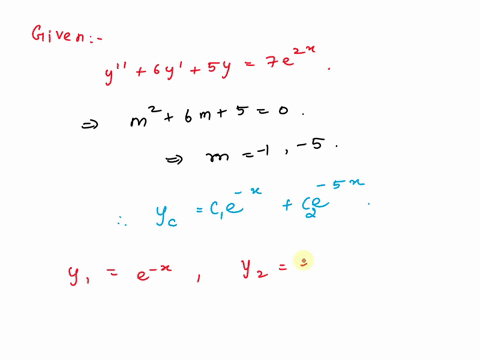 Given:-
y'' + 6y' + 5y = 7e^{2x}.
⇒ m² + 6m + 5 = 0.
⇒ m = -1, -5.
∴ y_c = c₁e^{-x} + c₂e^{-5x}.
y₁ = e^{-x}, y₂ =